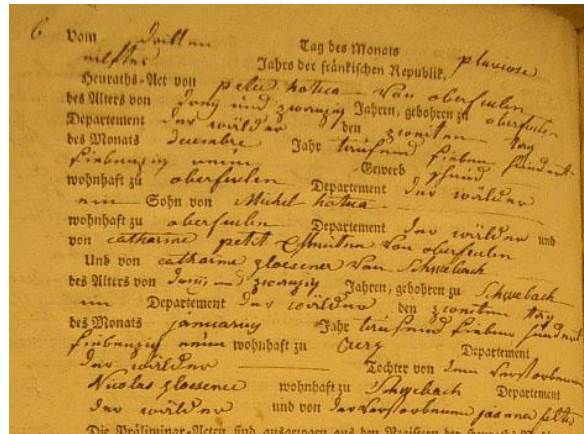 6 Vom dritten Tag des Monats pluviose
eilften Jahrs der fränkischen Republik.
Heuraths-Act von peter hottua von oberfeulen
des Alters von drey und zwanzig Jahren, gebohren zu oberfeulen
Departement der wälder den zweiten tag
des Monats decembre Jahr tausend sieben hundert
siebenzig neun Gewerb schmid
wohnhaft zu oberfeulen Departement der wälder
ein Sohn von Michel hottua
wohnhaft zu oberfeulen Departement der wälder und
von catharine petit Eheleuten von oberfeulen
Und von catharine gloesener von Schwebach
des Alters von und zwanzig Jahren, gebohren zu Schwebach
im Departement der wälder den zweiten tag
des Monats januarius Jahr tausend sieben hundert
siebenzig neun wohnhaft zu Departement
der wälder Tochter von dem verstorbenen
Nicolas gloesener wohnhaft zu Schwebach Departement
der wälder und von der verstorbenen
Die Präliminar-Acten sind ausgezogen aus den Registern der